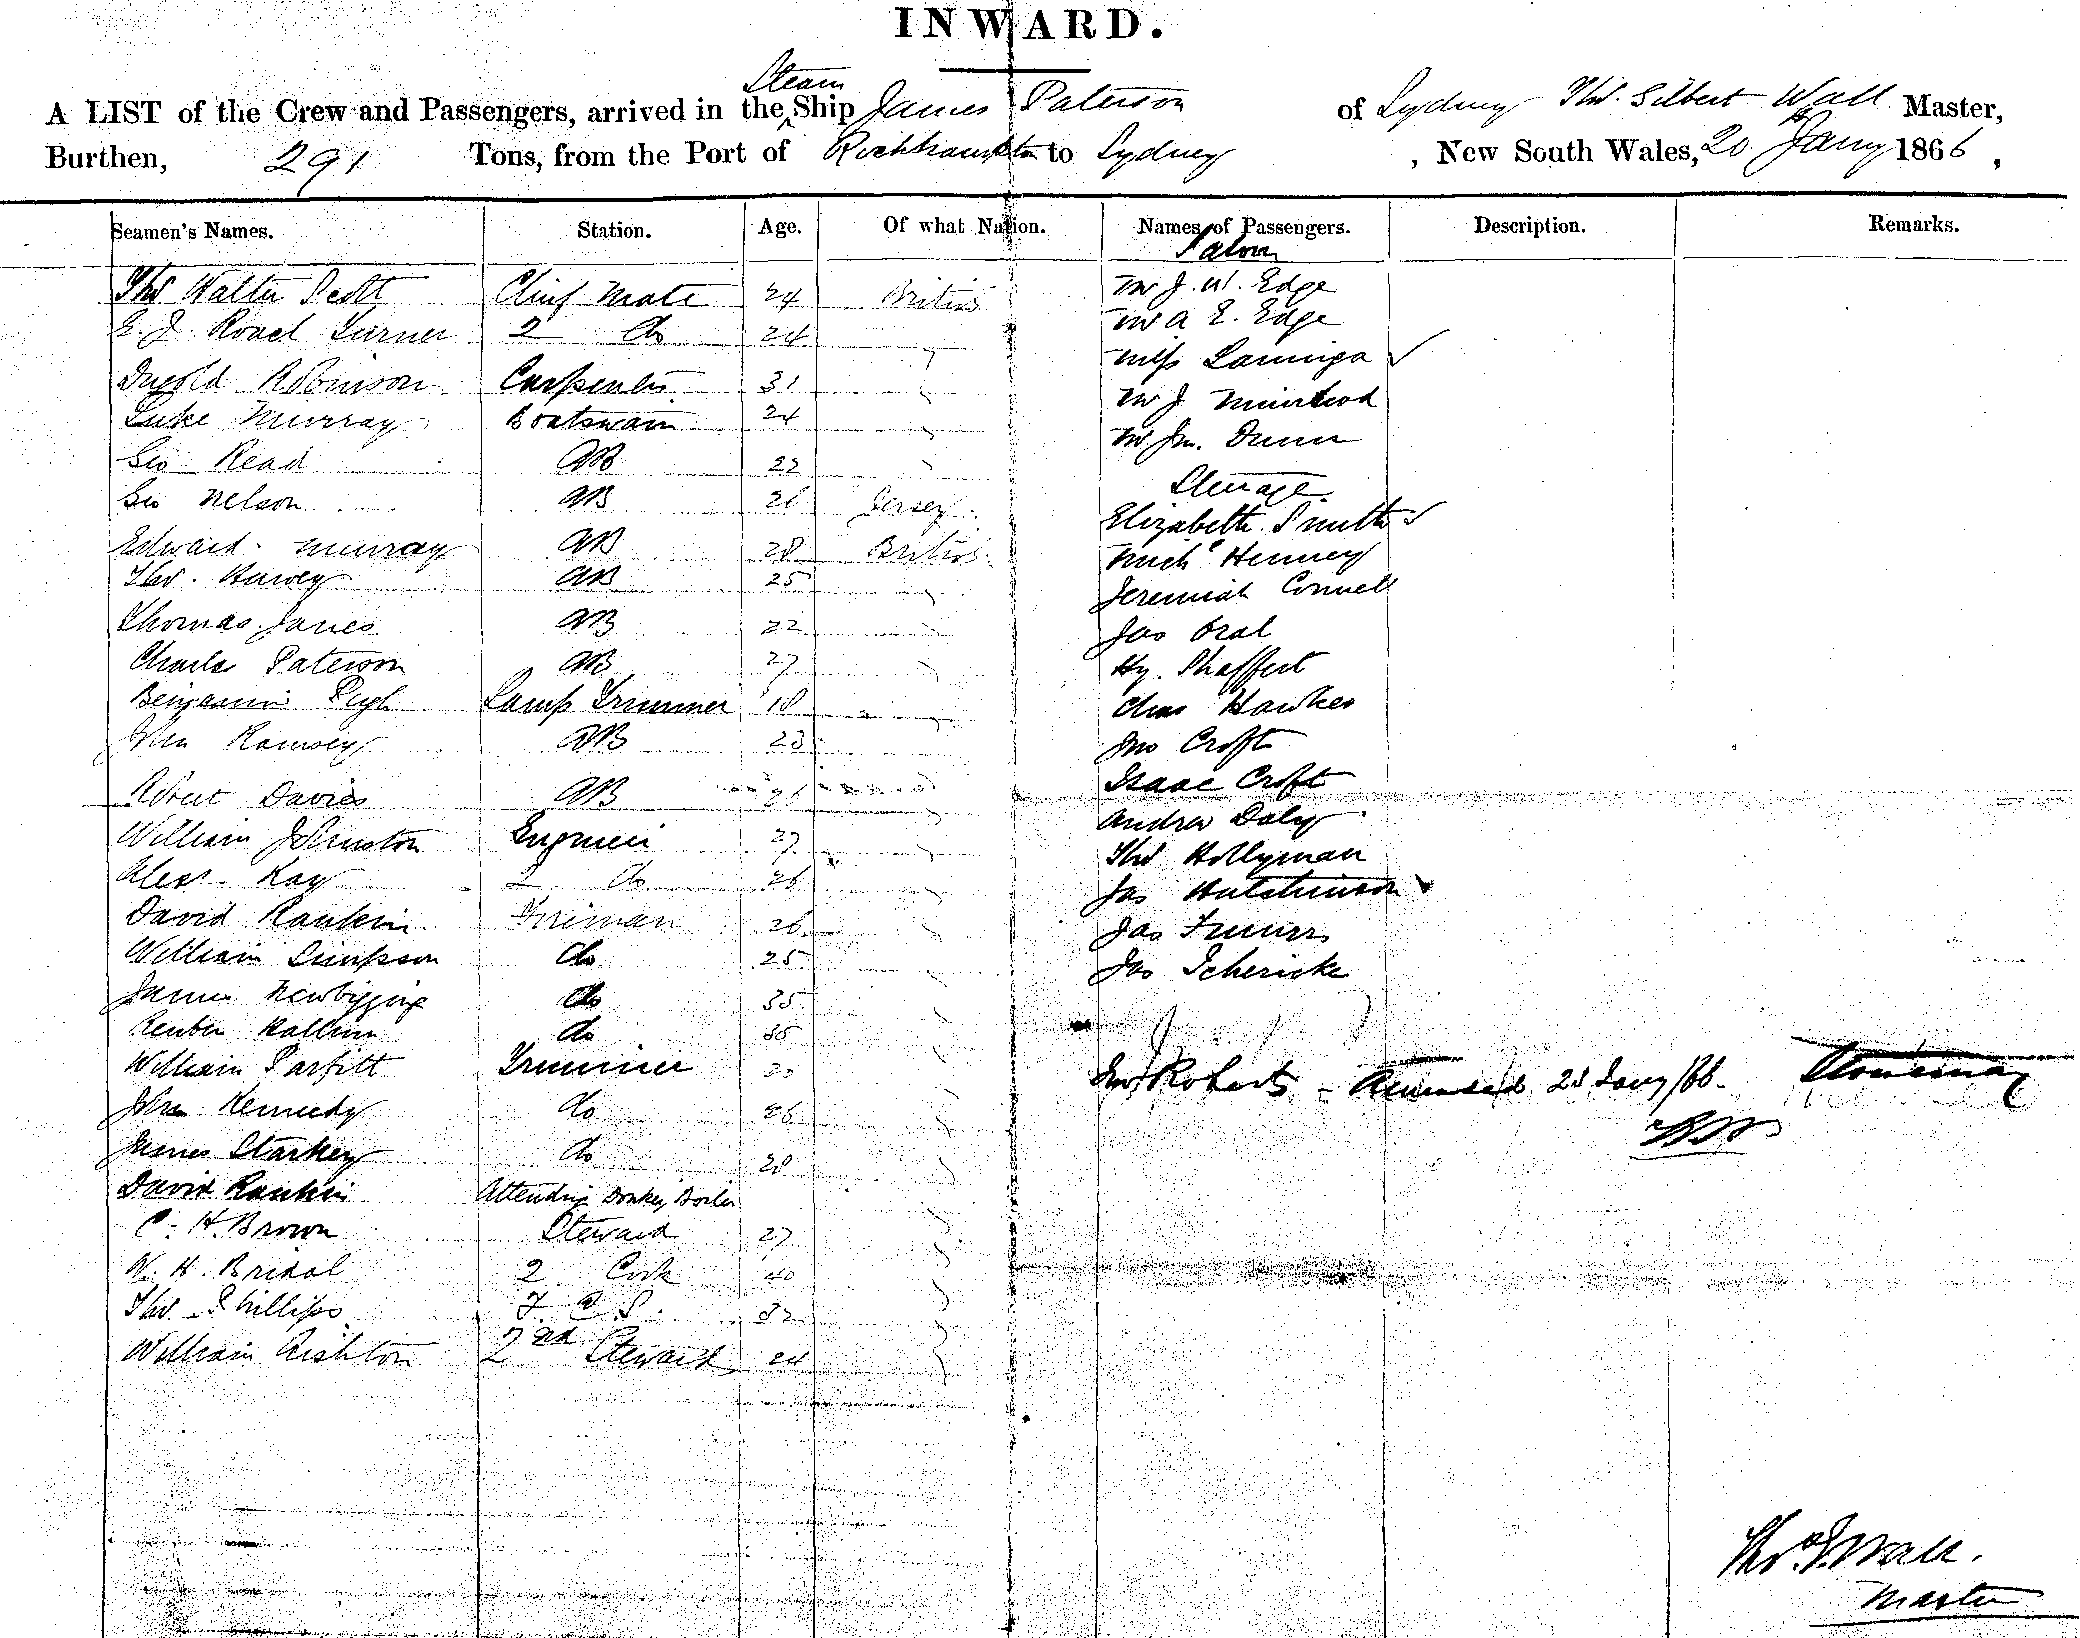 INWARD.
A LIST of the Crew and Passengers, arrived in the Steam Ship James Paterson of Sydney Thos. Gilbert Wall Master,
Burthen, 291 Tons, from the Port of Rockhampton to Sydney, New South Wales, 20 Jany 1866,
Seamen's Names. Station. Age. Of what Nation. Names of Passengers. Description. Remarks.
Saloon
Thos Walter Scott Chief Mate 24 British Mr J. W. Edge
E. J. Turner 2 do 24 Mr A E. Edge
Miss
Dugold Robinson Carpenter 31 Mr J Muirhead
Luke Murray Boatswain 24 Mr Jno. Dunn
Geo Read AB 22 Steerage
Geo Nelson AB 26 Jersey Elizabeth Smith
Edward Murray AB 28 British Mich Henney
Thos. Harvey AB 25 Jeremiah Connell
Thomas Jones AB 22 Jas Oral
Charles Paterson AB 27 Hy. Shaffert
Benjamin Pugh Lamp Trimmer 18 Chas Hawkes
John Ramsey AB 23 Jno Croft
Isaac Croft
Robert Davies AB Andrew Daly
William Johnston Engineer 27 Thos Hollyman
Alexr. Kay 2 do 26 Jas Hutchinson
David Rankin Fireman 26 Jas
William Simpson do 25 Jas
James Newbigging do 35
Reuben do 35
William Parfitt Trimmer Jno Roberts 23 Jany/66.
John Kennedy do 26
James Starkey do 28
David Rankin Attending Donkey Boiler
C. H. Brown Steward 27
W. H. Bridal 2 Cook 40
Thos. Phillips F. C. S. 32
William Rishton 2nd Steward 24
Thos. G. Wall.
Master